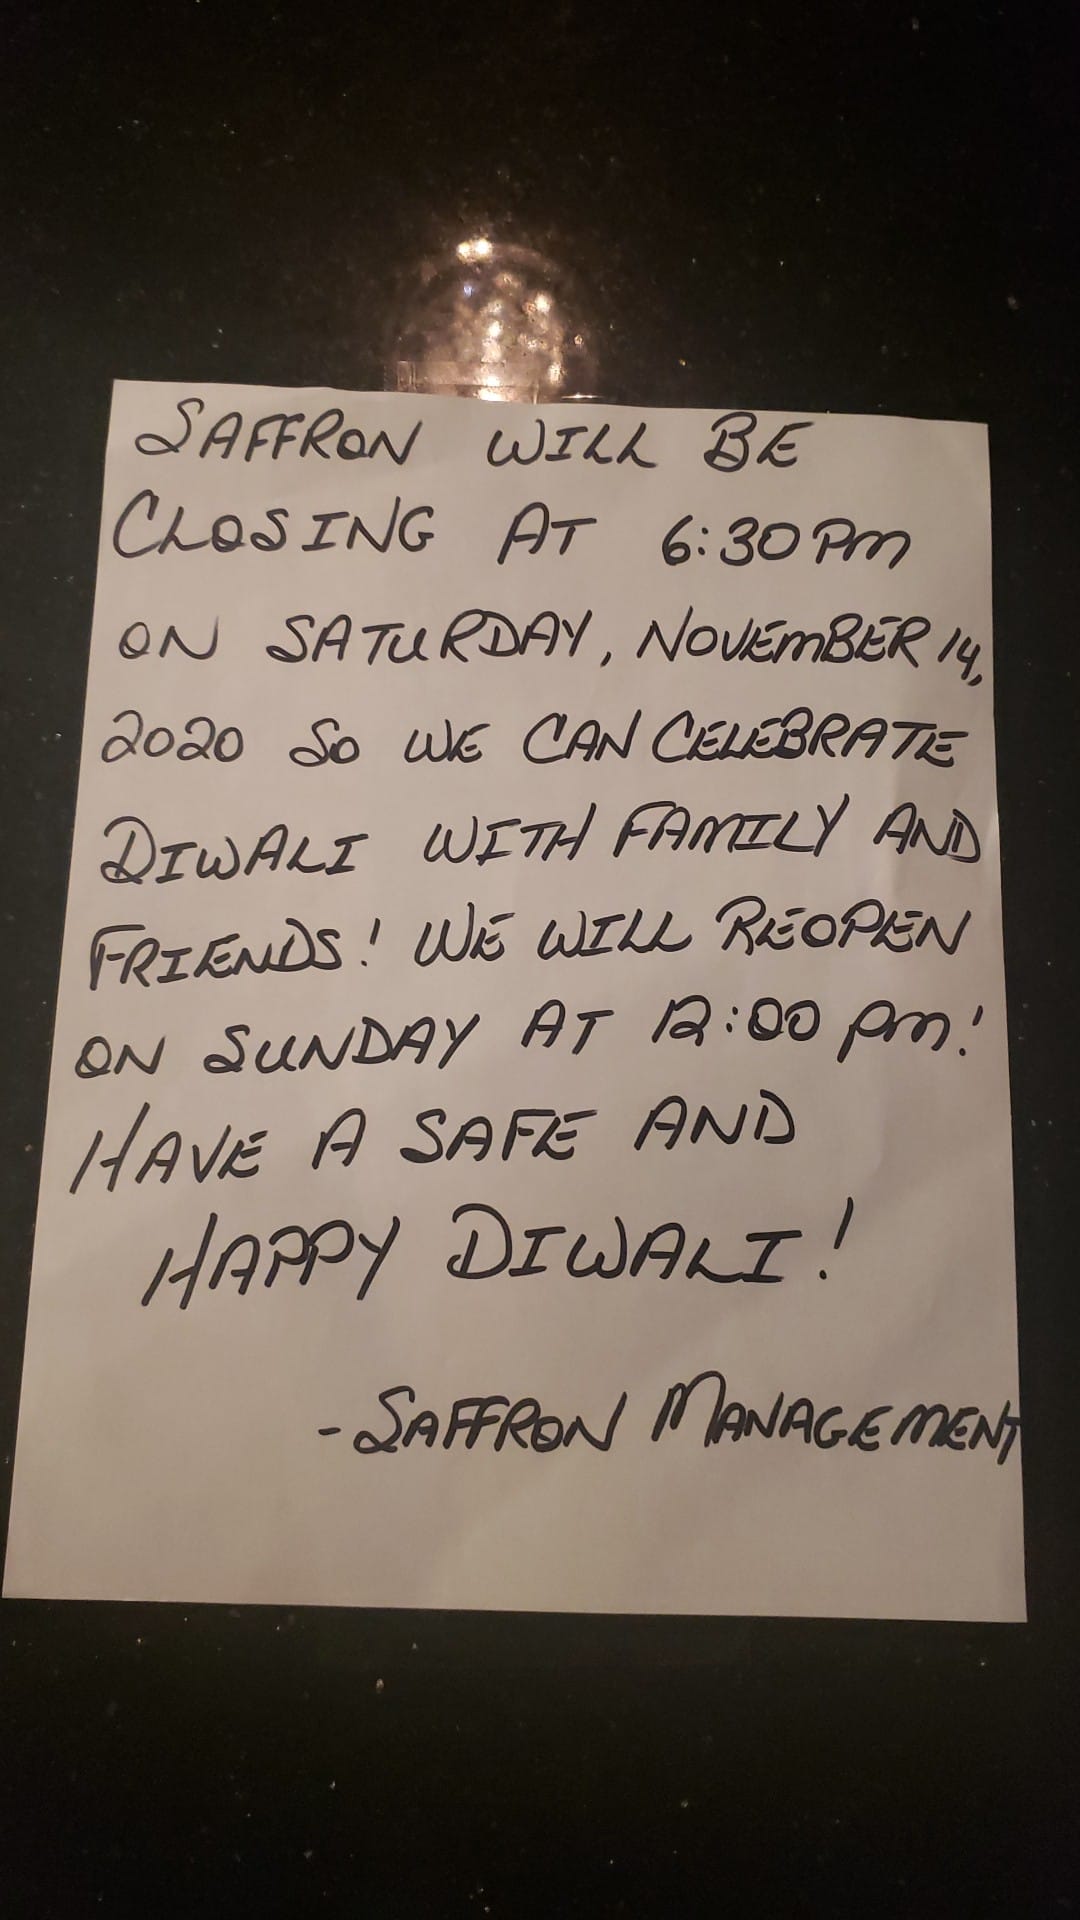 SAFFRON WILL BE
CLOSING AT 6:30 PM
ON SATURDAY, NOVEMBER 14,
2020 SO WE CAN CELEBRATE
DIWALI WITH FAMILY AND
FRIENDS! WE WILL REOPEN
ON SUNDAY AT 12:00 PM!
HAVE A SAFE AND
HAPPY DIWALI!
-SAFFRON MANAGEMENT